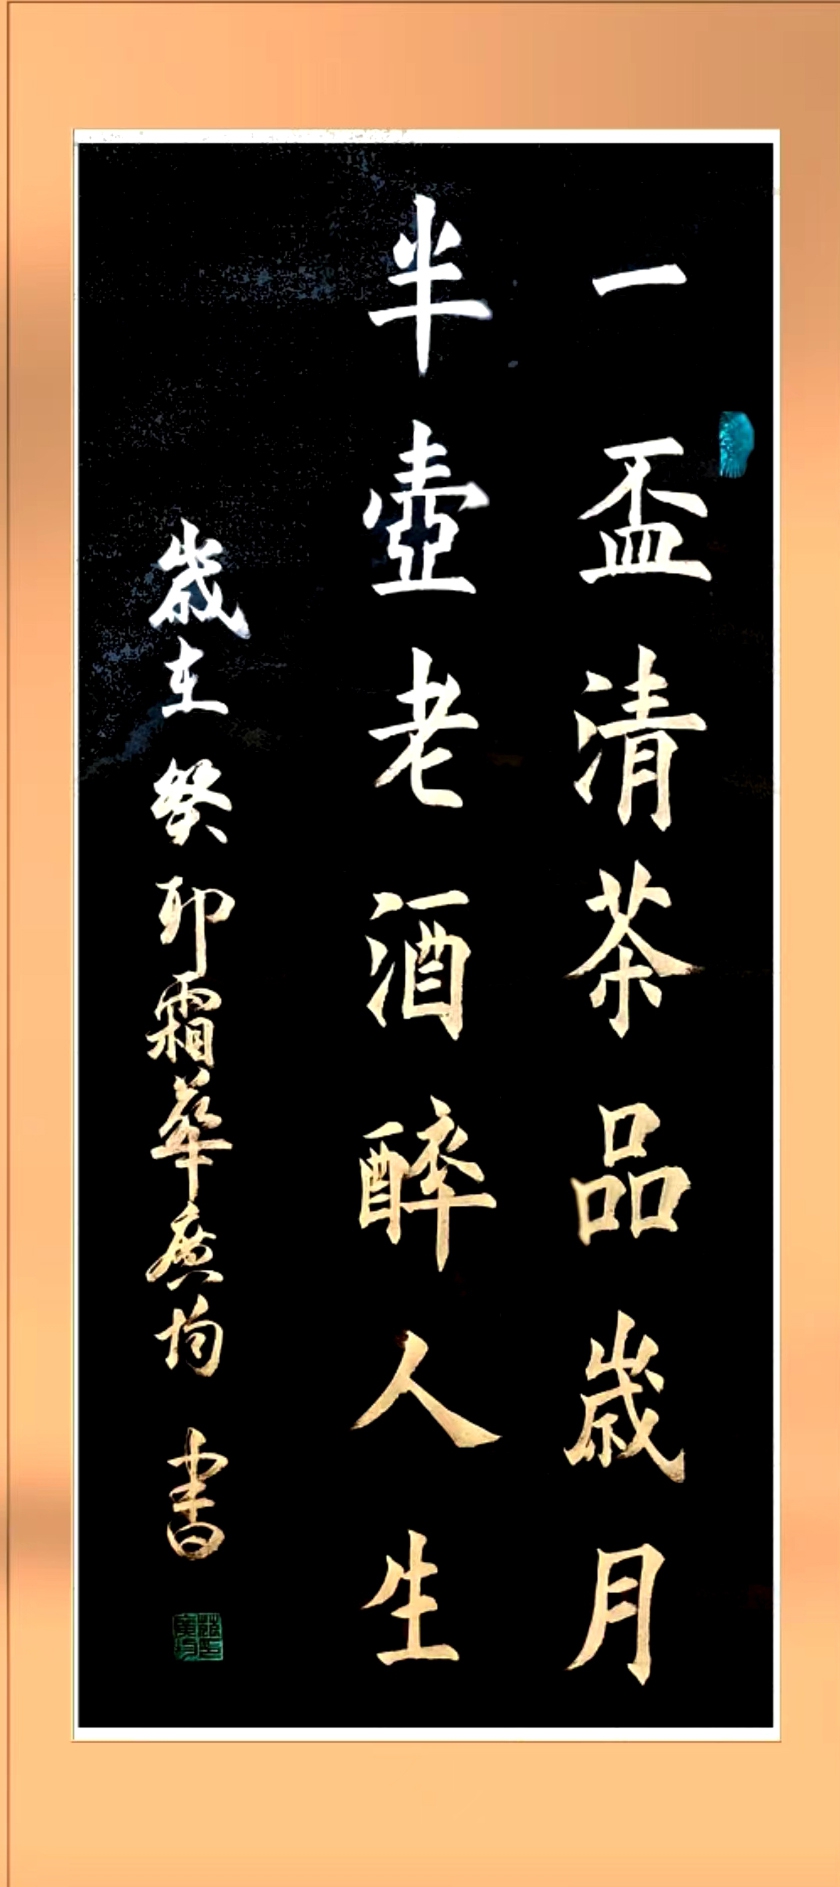 一盃清茶品歲月
半壺老酒醉人生
歲在癸卯霜華廣均書